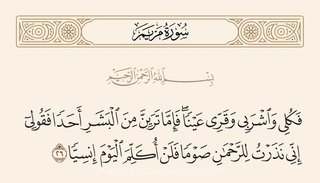 سُورَةُ مَرْيَمَ
بِسْمِ ٱللَّهِ ٱلرَّحْمَٰنِ ٱلرَّحِيمِ
فَكُلِى وَٱشْرَبِى وَقَرِّى عَيْنًاۖ فَإِمَّا تَرَيِنَّ مِنَ ٱلْبَشَرِ أَحَدًا فَقُولِىٓ
إِنِّى نَذَرْتُ لِلرَّحْمَٰنِ صَوْمًا فَلَنْ أُكَلِّمَ ٱلْيَوْمَ إِنسِيًّا ٢٦